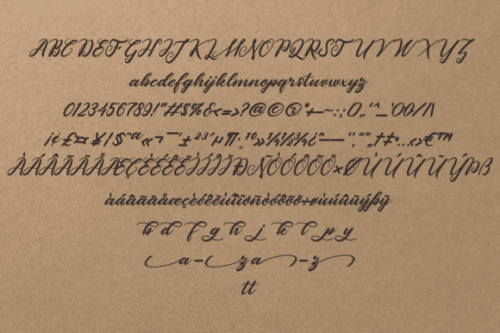 ABCDEFGHIJKLMNOPQRSTUVWXYZ
abcdefghijklmnopqrstuvwxyz
0123456789!"#$%&<=>?@
ÀÁÂÃÄÅÆÇÈÉÊËÌÍÎÏÐÑÒÓÔÕÖ×ØÙÚÛÜÝÞß
àáâãäåæçèéêëìíîïðñòóôõö÷øùúûüýþÿ
b d f g h j k l p y
a - z a - z
tt